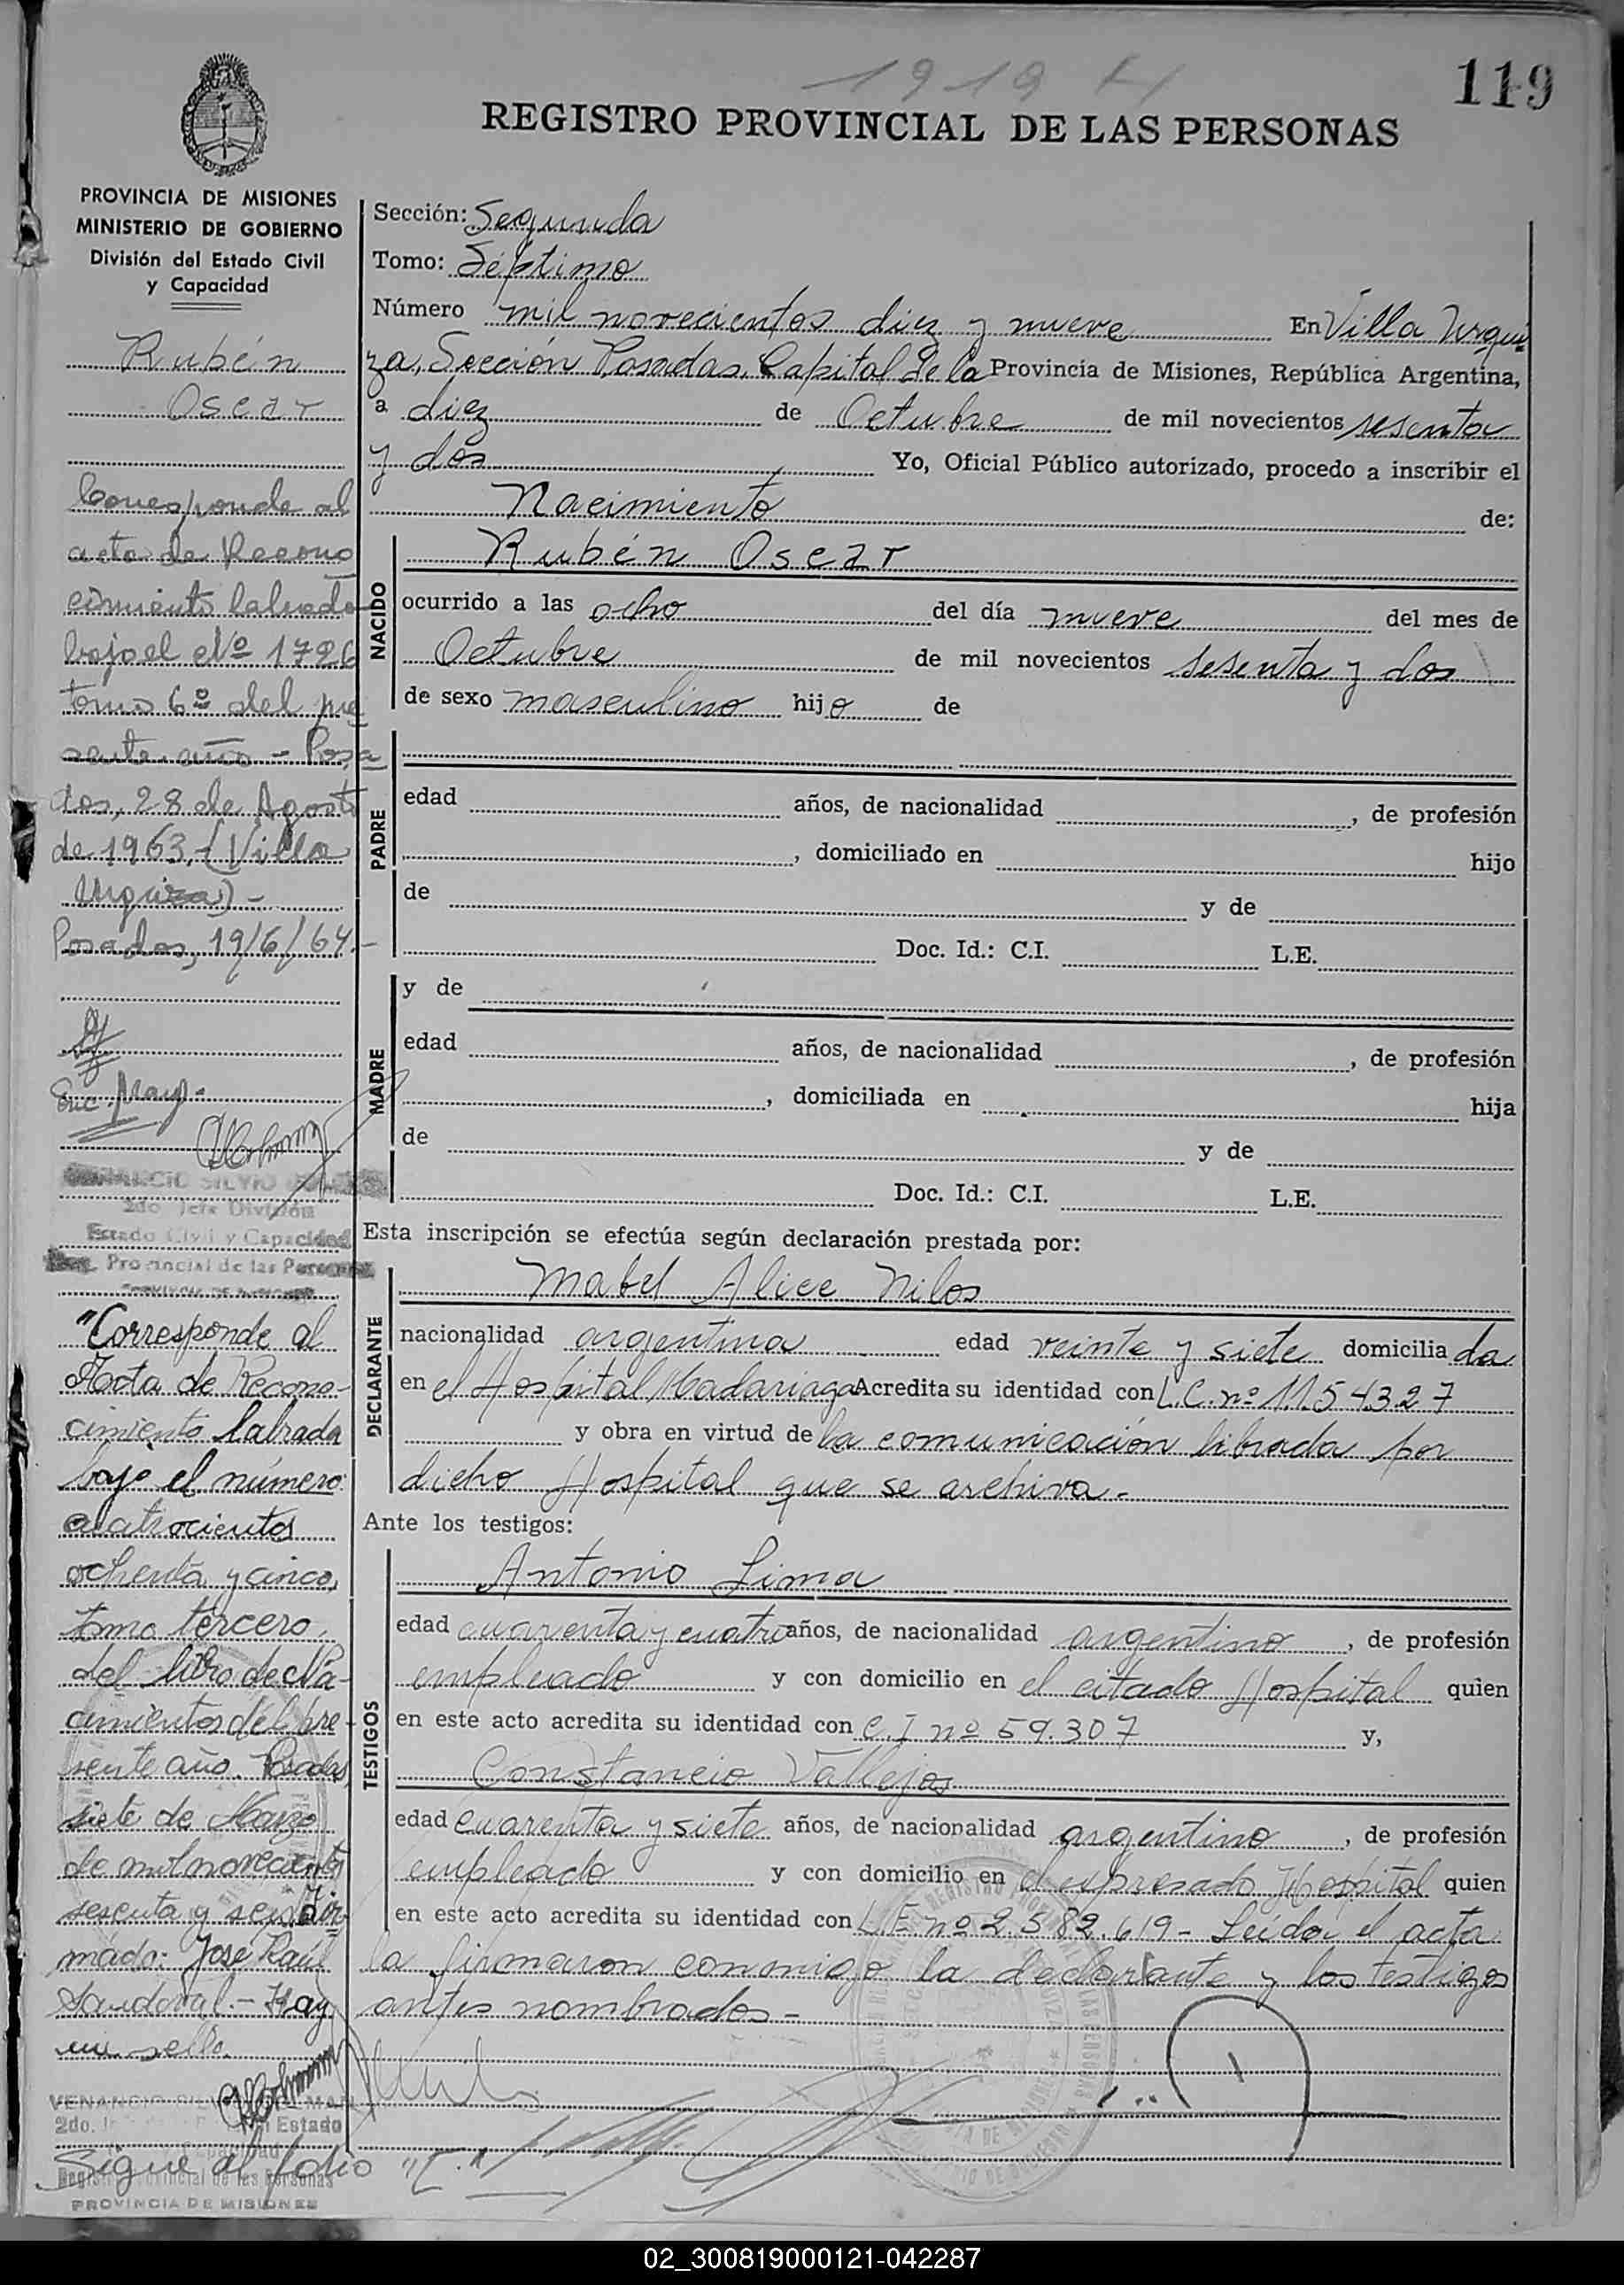 1919 H
119
REGISTRO PROVINCIAL DE LAS PERSONAS
PROVINCIA DE MISIONES
MINISTERIO DE GOBIERNO
División del Estado Civil
y Capacidad
Rubén
Oscar
Corresponde al
acta de Recono
cimiento labrada
bajo el Nº 1726
tomo 6º del pre
sente año - Posa
das, 28 de Agosto
de 1963,-(Villa
Urquiza)-
Posadas, 19/6/64.-
2do Jefe División
Estado Civil y Capacidad
Reg. Provincial de las Personas
PROVINCIA DE MISIONES
"Corresponde al
Acta de Recono-
cimiento labrada
bajo el número
cuatrocientos
ochenta y cinco,
tomo tercero,
del libro de Na-
cimientos del pre-
sente año. Posadas
siete de Marzo
de mil novecientos
sesenta y seis. Fir-
mado: José Raúl
Sandoval.- Hay
un sello.
2do. Estado
Sigue al folio
Registro Provincial de las Personas
PROVINCIA DE MISIONES
Sección: Segunda
Tomo: Séptimo
Número mil novecientos diez y nueve En Villa Urqui
za, Sección Posadas, Capital de la Provincia de Misiones, República Argentina,
a diez de Octubre de mil novecientos sesenta
y dos Yo, Oficial Público autorizado, procedo a inscribir el
Nacimiento de:
NACIDO
Rubén Oscar
ocurrido a las ocho del día nueve del mes de
Octubre de mil novecientos sesenta y dos
de sexo masculino hijo de
PADRE
edad años, de nacionalidad , de profesión
, domiciliado en hijo
de y de
Doc. Id.: C.I. L.E.
MADRE
y de
edad años, de nacionalidad , de profesión
, domiciliada en hija
de y de
Doc. Id.: C.I. L.E.
Esta inscripción se efectúa según declaración prestada por:
DECLARANTE
Mabel Alice Nilos
nacionalidad argentina edad veinte y siete domiciliada
en el Hospital Madariaga Acredita su identidad con L.C. nº 1.154.327
y obra en virtud de la comunicación librada por
dicho Hospital que se archiva.-
Ante los testigos:
TESTIGOS
Antonio Lima
edad cuarenta y cuatro años, de nacionalidad argentino , de profesión
empleado y con domicilio en el citado Hospital quien
en este acto acredita su identidad con C.I nº 59.307 y,
Constancio Vallejos
edad cuarenta y siete años, de nacionalidad argentino , de profesión
empleado y con domicilio en el expresado Hospital quien
en este acto acredita su identidad con L.E. nº 2.582.619- Leída el acta
la firmaron conmigo la declarante y los testigos
antes nombrados-
02_300819000121-042287